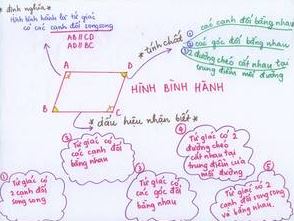 * định nghĩa *
Hình bình hành là tứ giác
có các cạnh đối song song
AB // CD
AD // BC
* tính chất *
① các cạnh đối bằng nhau
② các góc đối bằng nhau
③ 2 đường chéo cắt nhau tại
trung điểm mỗi đường
A
D
B
C
HÌNH BÌNH HÀNH
* dấu hiệu nhận biết *
①
Tứ giác có
2 cạnh đối
song song
②
Tứ giác có
các cạnh đối
bằng nhau
③
Tứ giác có
các góc đối
bằng nhau
④
Tứ giác có 2
đường chéo
cắt nhau tại
trung điểm của
mỗi đường
⑤
Tứ giác có
2 cạnh đối song song
và bằng nhau.